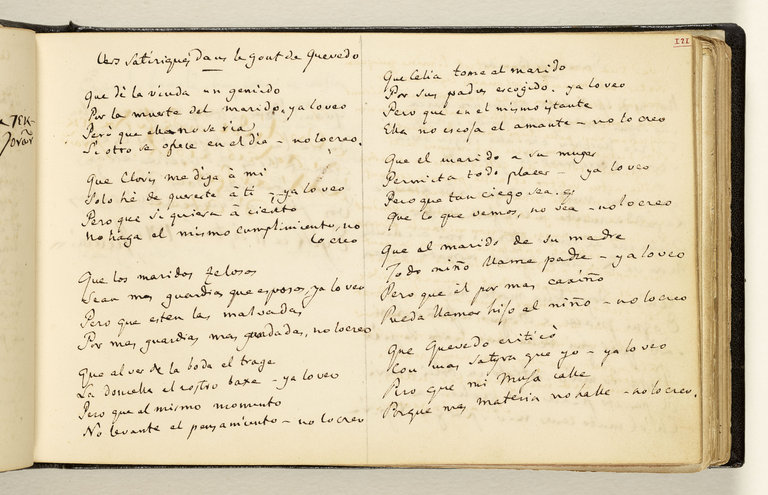 Vers Satiriques Dans le gout de Quevedo
Que dé la viuda un gemido
Por la muerte del marido, ya lo veo
Pero que ella no se ria
Si otro se ofrece en el dia – no lo creo.
Que Cloris me diga à mi
Solo hé de quererte à ti – ya lo veo
Pero que si quiera à ciento
No haga el mismo cumplimiento, no
lo creo
Que los maridos zelosos
Sean mas guardias que esposos, ya lo veo
Pero que esten las malvadas
Por mas guardias mas guardadas, no lo creo
Que al ver de la boda el trage
La doncella el rostro baxe – ya lo veo
Pero que al mismo momento
No levante el pensamiento – no lo creo
121
Que Celia tome el marido
Por sus padres escogido. ya lo veo
Pero que en el mismo istante
Ella no escoja el amante – no lo creo
Que el marido a su muger
Permita todo placer – ya lo veo
Pero que tan ciego sea
Que lo que vemos, no vea – no lo creo
Que al marido de su madre
Todo niño llame padre – ya lo veo
Pero que él por mas cariño
Pueda llamar hijo al niño – no lo creo
Que Quevedo criticò
Con mas Satyra que yo – ya lo veo
Pero que mi Musa calle
Porque mas materia no halle – no lo creo.